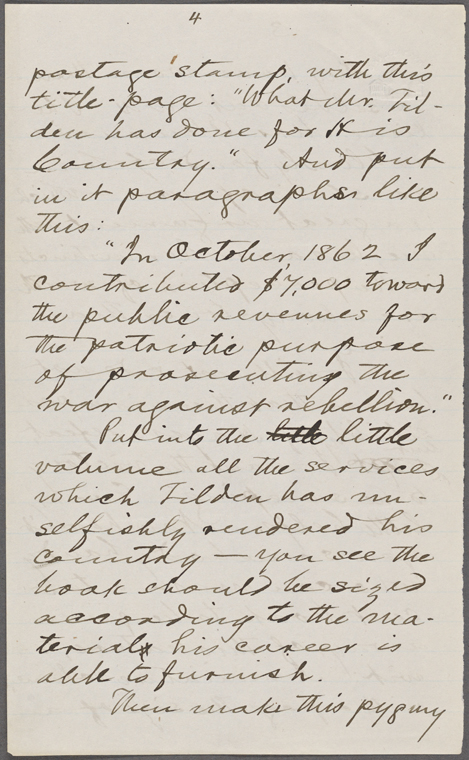 4
postage stamp, with this
title-page: "What Mr. Til-
den has done for His
Country." And put
in it paragraphs like
this:
"In October, 1862 I
contributed $7,000 toward
the public revenues for
the patriotic purpose
of prosecuting the
war against rebellion."
Put into the little little
volume all the services
which Tilden has un-
selfishly rendered his
country — you see the
book should be sized
according to the ma-
terial his career is
able to furnish.
Then make this pygmy